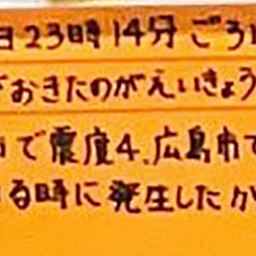 日23時14分ごろ
おきたのがえいきょう
で震度4、広島市で
る時に発生したか